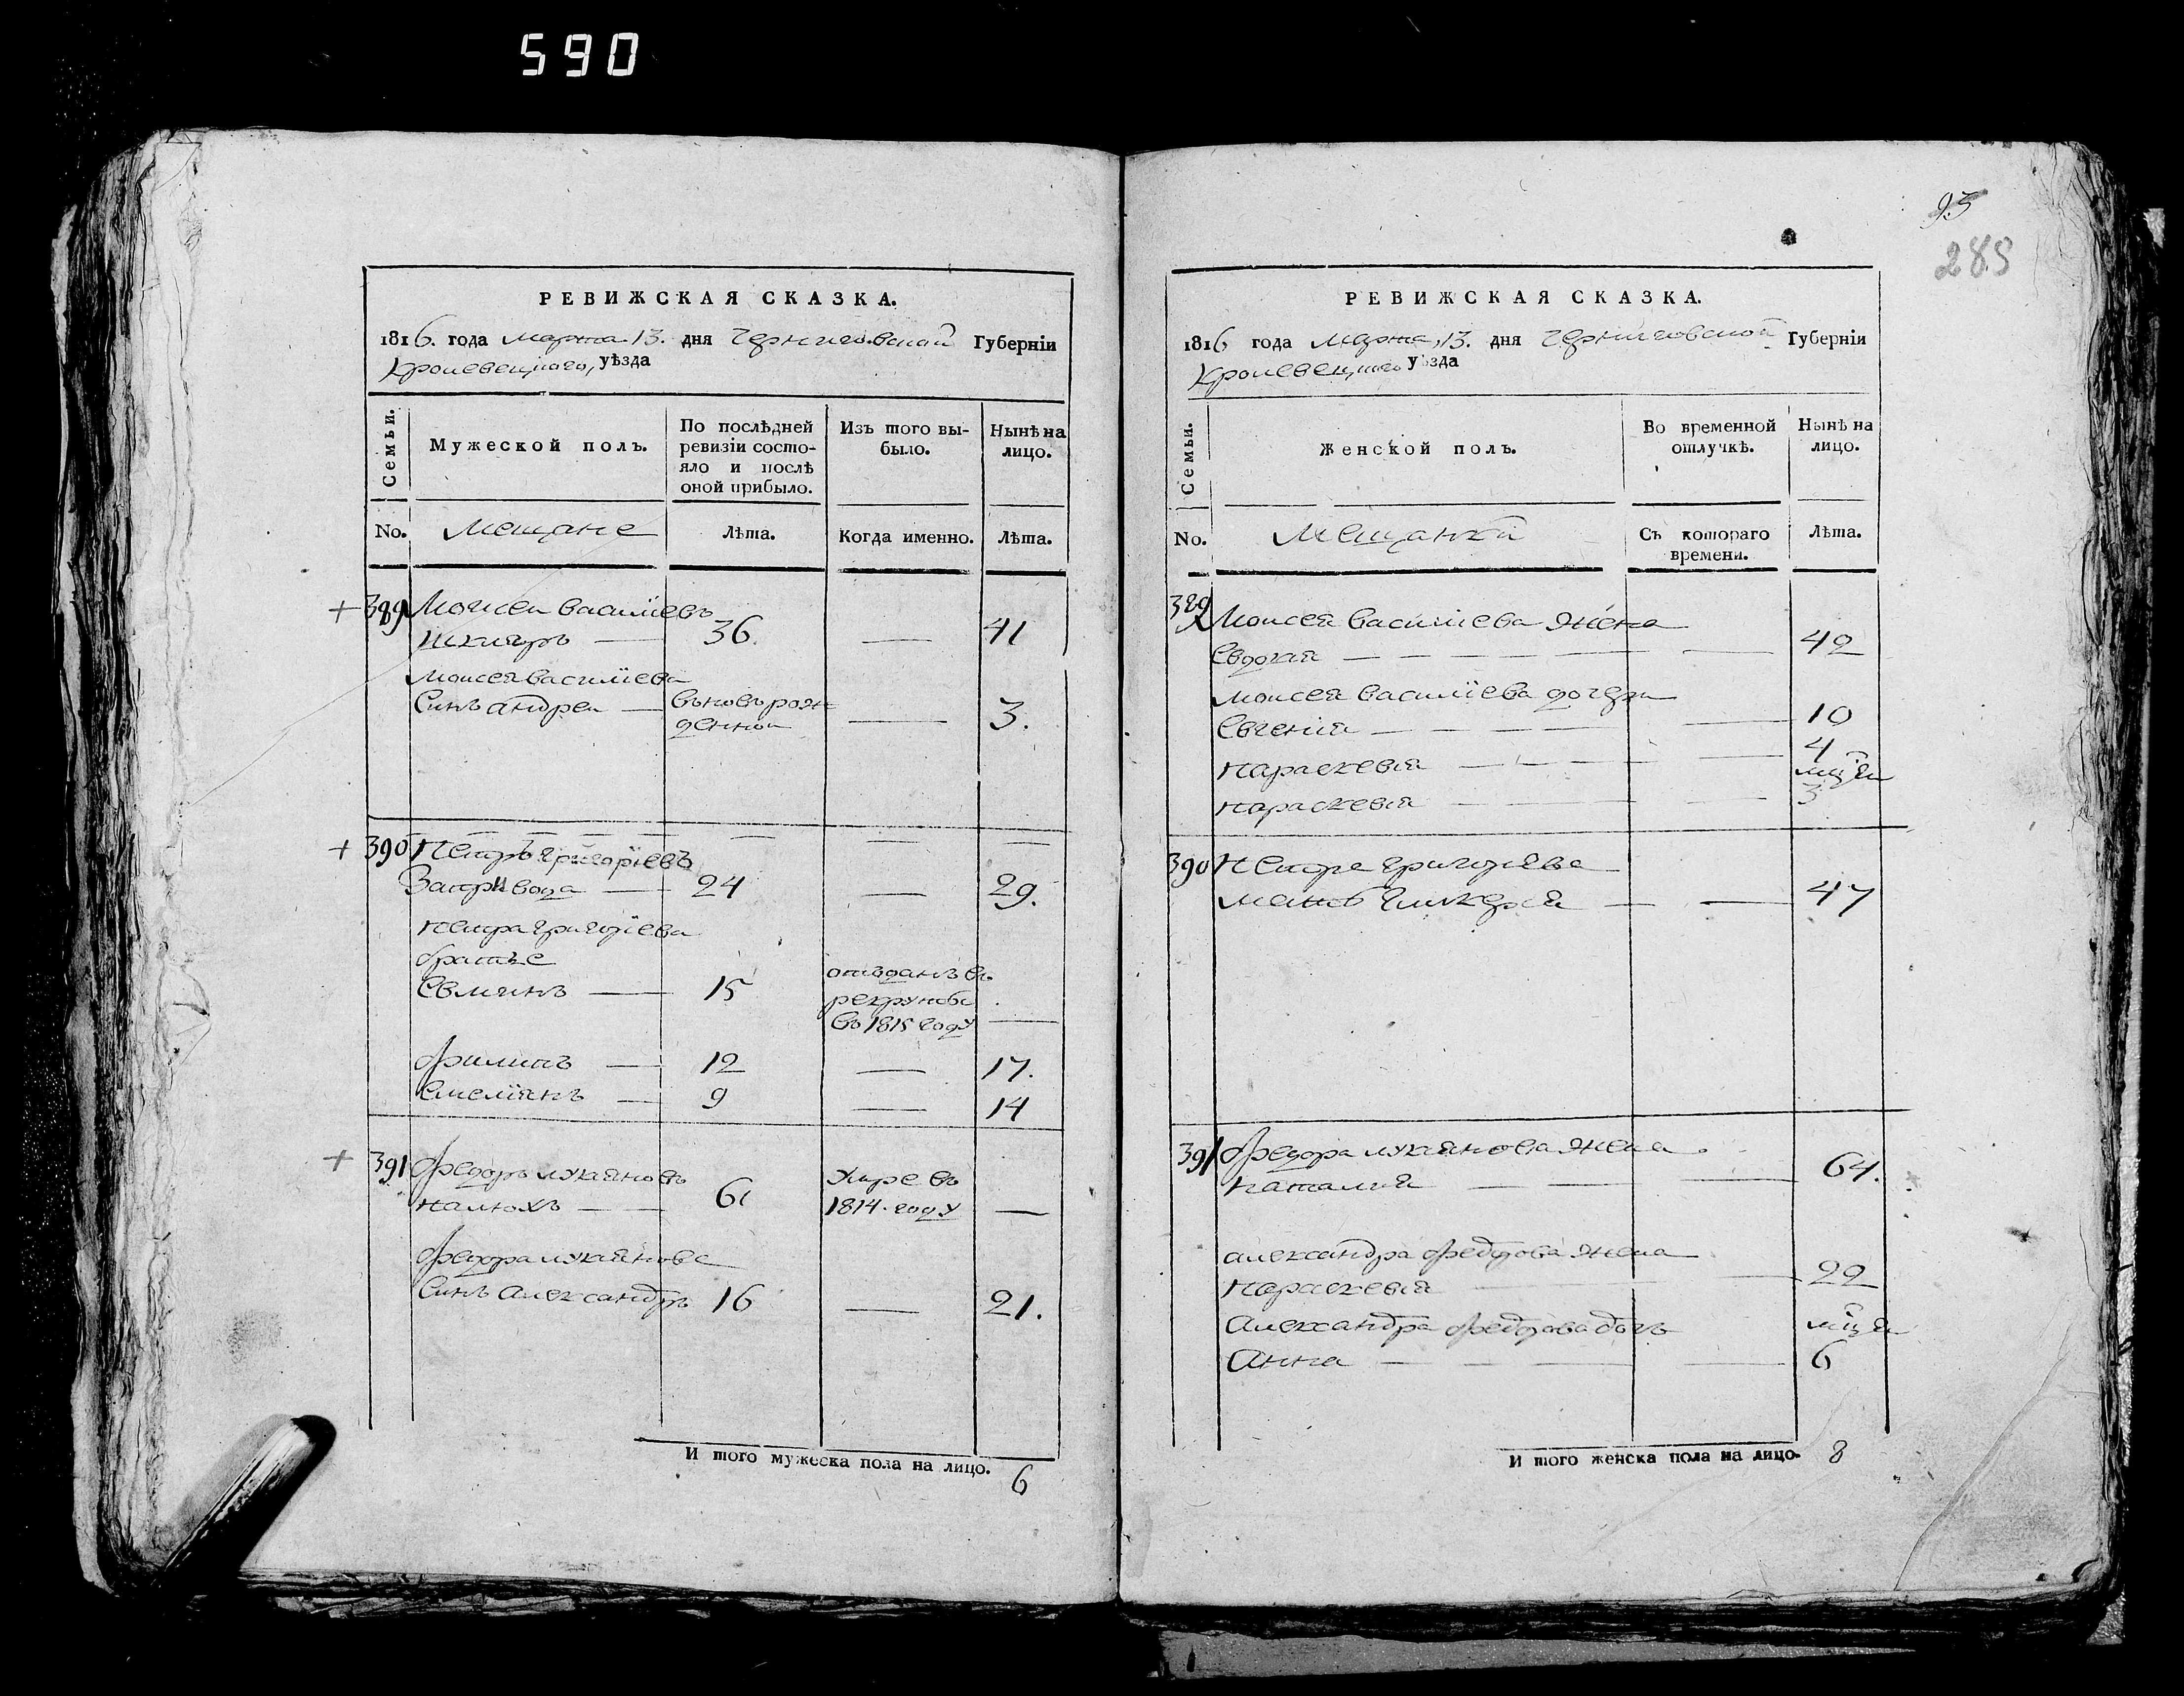 590
РЕВИЖСКАЯ СКАЗКА.
1816. года марта 13. дня Черниговской Губерніи
Кролевецкого, уѣзда
Семьи.
Мужеской полъ.
По послѣдней
ревизіи состо-
яло и послѣ
оной прибыло.
Изъ того вы-
было.
Нынѣ на
лицо.
No.
Мещане
Лѣта.
Когда именно.
Лѣта.
+ 389 Моисеи василиевъ
36. — 41
моисея василиева
Синъ андреи — вьновъ рож
денной — 3.
+ 390 Петръ григориевъ
Вода — 24 — 29.
петра григориева
братье
15 отъданъ въ
рекруты
въ 1815 году —
филипъ — 12 — 17.
емелиянъ — 9 — 14
+ 391 федоръ лукяновъ
61 умре въ
1814. году —
федора лукянова
Синъ александръ 16 — 21.
И того мужеска пола на лицо. 6
93
285
РЕВИЖСКАЯ СКАЗКА.
1816 года марта, 13. дня Черниговской Губерніи
Кролевецкого уѣзда
Семьи.
Женской полъ.
Во временной
отлучкѣ.
Нынѣ на
лицо.
No.
Мещанки
Съ котораго
времени.
Лѣта.
389 Моисея василиева жена
Евдокия — 42
моисея василиева дочери
Евгения — 10
параскевия — 4
мцзи
параскевия — 3
390 Петра григориева
мать гликерия — 47
391 федора лукянова жена
наталия — 64.
александра федорова жена
параскевия — 22
александра федорова дочъ
Анна — 6
И того женска пола на лицо. 8